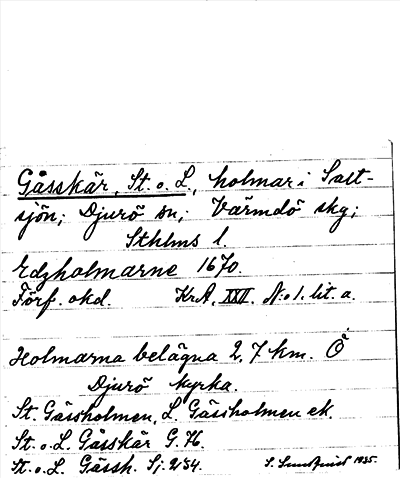 Gåsskär, St. o. L, holmar i Salt-
sjön; Djurö sn; Värmdö skg;
Sthlms l.
Edzholmarne 1670.
Förf. okd. KrA. XXII. N:o 1. lit. a.
Holmarna belägna 2,7 km. Ö
Djurö kyrka.
St. Gåssholmen, L. Gåssholmen ek.
St. o. L. Gåsskär G.K.
St. o. L. Gåssk. Sj. 2154.
S. Sundquist 1935.